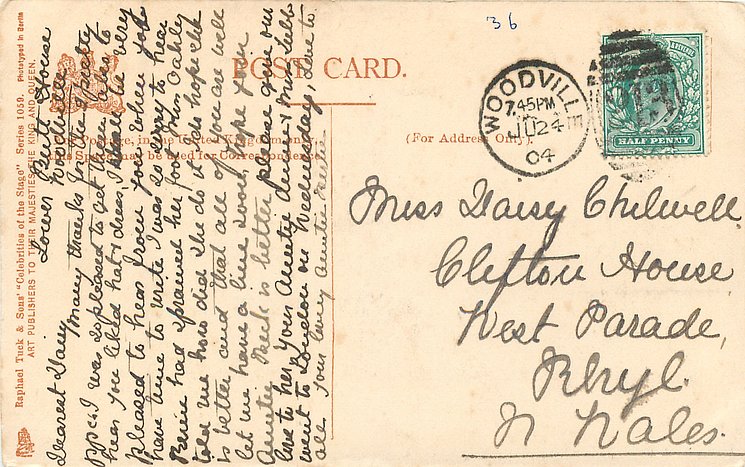 36
POST CARD.
WOODVILLE
7.45PM
JU 24
04
HALF PENNY
(For Address Only).
For Postage, in the United Kingdom only,
this Space may be used for Correspondence.
Miss Daisy Chilwell
Clifton House
West Parade,
Rhyl.
N Wales.
Raphael Tuck & Sons' "Celebrities of the Stage" Series 1059. Phototyped in Berlin
ART PUBLISHERS TO THEIR MAJESTIES THE KING AND QUEEN.
Lower South House
Woodville
Dearest Daisy
Many thanks for the pretty
PPC I was so pleased to get them Glad to
hear you liked hat & dress, I shall be very
pleased to hear from you When you
have time to write I was so sorry to hear
had sprained her foot Miss Oakly
told me how did she do it I do hope she
is better and that all of you are well
let me have a line soon, hope your
Auntie is better please give our
love to her, your Auntie Annie & Mrs
went to London on Wednesday, love to
all your loving Auntie Nellie